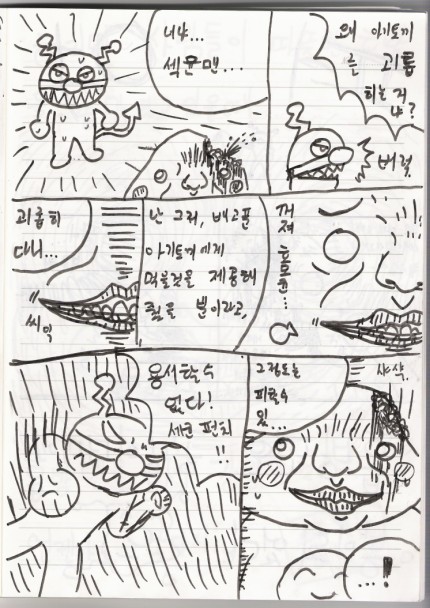 니냐...
왜 아기토끼
를 괴롭
히는 거
냐?
버럭
괴롭히
다니...
씨익
난 그저, 배고픈
아기토끼에게
먹을것을 제공해
줬을 뿐이라고,
꺼
져
용서할수
없다!
세균 펀치
!!
그정도는
피할수
있...
샤샥.
...!